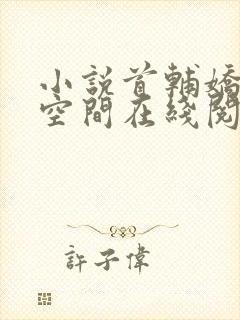 小說首輔嬌
空間在綫閱
許子偉